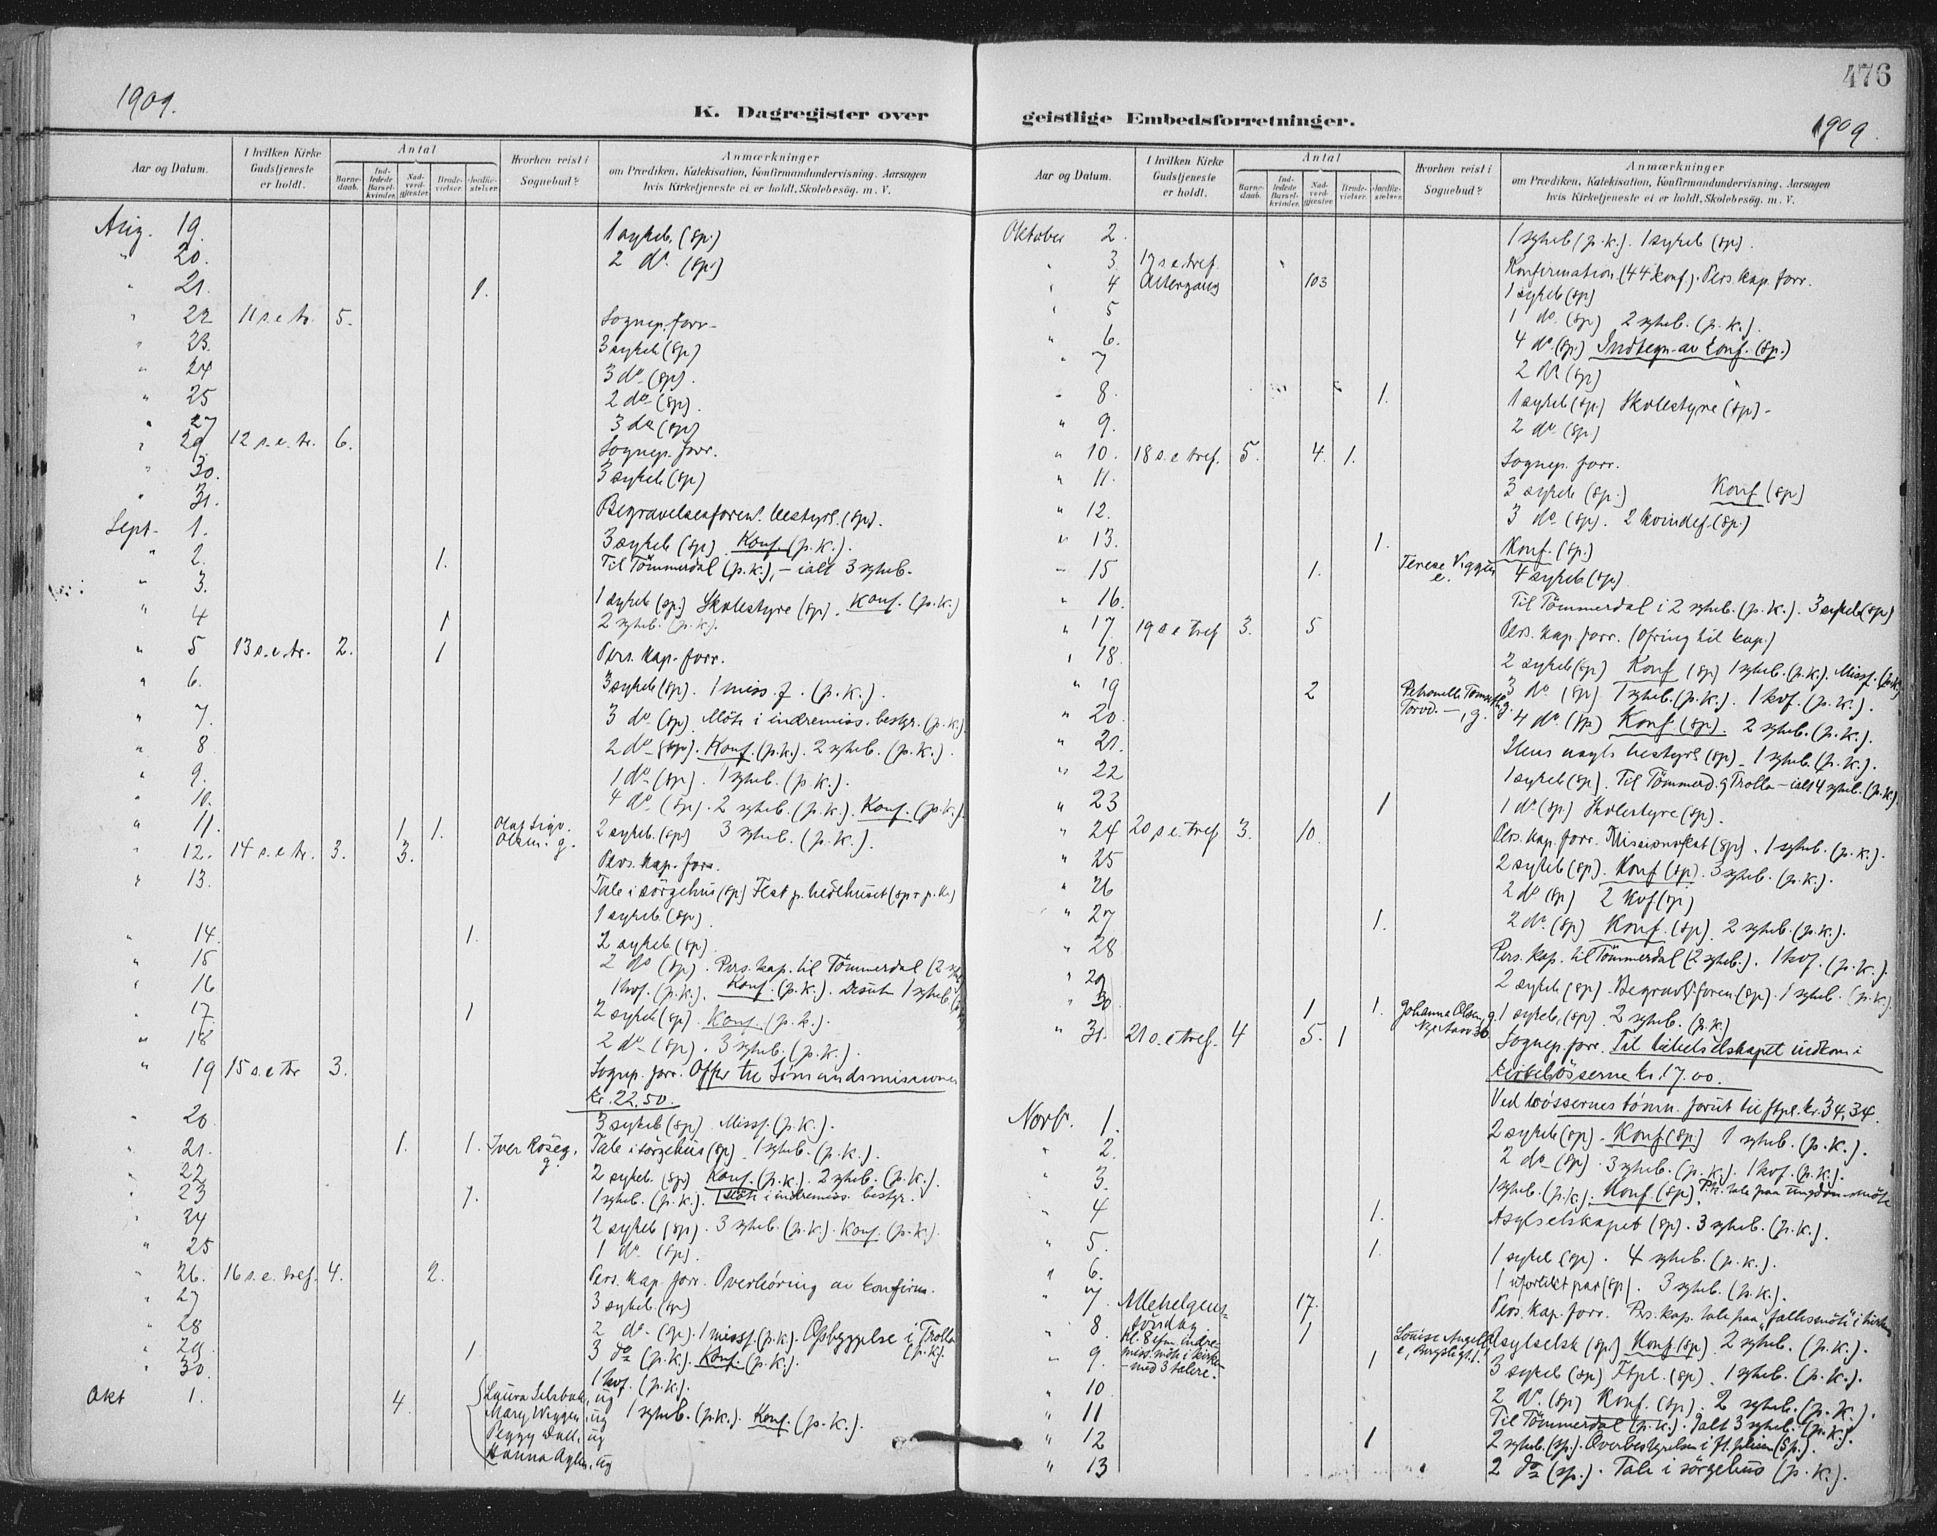 476
1909.
K. Dagregister over
geistlige Embedsforretninger.
1909.
Aar og Datum.
I hvilken Kirke Gudstjeneste er holdt.
Antal
Barnedaab.
Indledede Barselkvinder.
Nadverdgjester.
Brudevielser.
Jordfæstelser.
Hvorhen reist i Sognebud?
Anmærkninger
om Prædiken, Katekisation, Konfirmandundervisning. Aarsagen
hvis Kirketjeneste ei er holdt. Skolebesøg. m. V.
Aug. 19. 1 sykeb. (sp.)
" 20. 2 do. (sp.)
" 21. 1.
" 22 11 s. e. tr. 5. Sognep. forr.
" 23. 3 sykeb (sp)
" 24 3 do (sp).
" 25 2 do (sp).
" 27 3 do (sp)
" 29 12 s. e. tr. 6. Sognep. forr.
" 30. 3 sykeb (sp)
" 31. Begravelsesforen. bestyr. (sp).
Sept. 1. 3 sykeb (sp) Konf. (p. k.).
" 2. 1. Til Tömmerdal (p. k.), - ialt 3 sykeb.
" 3. 1 sykeb (sp.) Skolestyre (sp). Konf. (p. k.)
" 4 1 2 sykeb. (p. k.).
" 5 13 s. e. tr. 2. 1 Pers. kap. forr.
" 6. 3 sykeb (sp). 1 miss. f. (p. k.).
" 7. 3 do (sp). Möte i indremiss. bestyr. (p. k.)
" 8 2 do (sp). Konf. (p. k.). 2 sykeb. (p. k.).
" 9. 1 do (sp). 1 sykeb. (p. k.).
" 10. 4 do (sp). 2 sykeb. (p. k.). Konf. (p. k.).
" 11. 1 1. Olaf Sigv. Olsen. g. 2 sykeb. (sp) 3 sykeb. (p. k.).
" 12. 14 s. e. tr. 3. 3. Pers. kap. forr.
" 13. Tale i sörgehus (sp) Fest p. bedehuset (sp + p. k.)
1 sykeb. (sp).
" 14. 1. 2 sykeb (sp).
" 15 2 do (sp). Pers. kap. til Tömmerdal (2
" 16 1 kof. (p. k.). Konf. (p. k.). Desuten 1 sykeb.
" 17. 1 2 sykeb (sp). Konf. (p. k.).
" 18 2 do (sp). 3 sykeb. (p. k.).
" 19 15 s. e. tr 3. Sognep. forr. Offer til Sömandsmissionen
kr. 22,50.
" 20 3 sykeb (sp) Missf. (p. k.).
" 21. 1. 1. Iver Roseg, g. Tale i sörgehus (sp). 1 sykeb. (p. k.).
" 22 2 sykeb. (sp) Konf. (p. k.). 2 sykeb. (p. k.).
" 23 1. 1 sykeb. (p. k.). Möte i indremiss. bestyr.
" 24 2 sykeb (sp). 3 sykeb. (p. k.). Konf. (p. k.).
" 25 1 do (sp).
" 26. 16 s. e. tref. 4. 2. Pers. kap. forr. Overhöring av konfirm.
" 27 3 sykeb. (sp)
" 28 2 do (sp). 1 missf. (p. k.). Opbyggelse i Trolla
" 29 1 3 do (p. k.). Konf. (p. k.). (p. k.).
" 30. 1 kof. (p. k.).
Okt 1. 4. Laura Selsbak, ug 1 sykeb. (p. k.). Konf. (p. k.).
Mary Wiggen, ug
Peggy Dahl, ug
Hanna ug
Aar og Datum.
I hvilken Kirke Gudstjeneste er holdt.
Antal
Barnedaab.
Indledede Barselkvinder.
Nadverdgjester.
Brudevielser.
Jordfæstelser.
Hvorhen reist i Sognebud?
Anmærkninger
om Prædiken, Katekisation, Konfirmandundervisning. Aarsagen
hvis Kirketjeneste ei er holdt. Skolebesøg. m. V.
Oktober 2. 1 sykeb (p. k.). 1 sykeb (sp).
" 3 17 s. e. tref. Konfirmation (44 konf). Pers. kap. forr.
" 4 Altergang 103 1 sykeb (sp)
" 5 1 do. (sp) 2 sykeb. (p. k.).
" 6. 4 do (sp.) Indtegn. av konf. (sp.)
" 7 2 do (sp)
" 8. 1. 1 sykeb (sp.) Skolestyre (sp) -
" 9. 2 do (sp)
" 10. 18 s. e tref. 5. 4. 1. Sognep. forr.
" 11. 3 sykeb (sp.) Konf (sp)
" 12. 3 do (sp). 2 kvindef. (sp.)
" 13. 1. Konf. (sp.)
" 15 1. Terese Viggen e. 4 sykeb (sp).
" 16. Til Tömmerdal i 2 sykeb. (p. k.). 3 sykeb (sp)
" 17. 19 s e tref 3. 5 Pers. kap. forr. (Ofring til kap.)
" 18. 2 sykeb (sp) Konf (sp) 1 sykeb. (p. k.). Missf. (p. k.)
" 19 2 Petronelle g. 3 do (sp) 1 sykeb. (p. k.). 1 kof. (p. k.).
" 20. Torvd. -, g. 4 do (sp) Konf (sp). 2 sykeb. (p. k.).
" 21. Ilens asyls bestyr (sp). 1 sykeb. (p. k.).
" 22 1 sykeb (sp). Til Tömmerd. og Trolla - ialt 4 sykeb. (p. k.).
" 23 1 1 do (sp) Skolestyre (sp).
" 24 20 s e. tref 3. 10. Pers. kap. forr. (sp). 1 sykeb. (p. k.).
" 25 2 sykeb (sp). Konf (sp). 3 sykeb. (p. k.).
" 26 2 do (sp) 2 kof (sp)
" 27 1. 2 do (sp) Konf. (sp). 2 sykeb. (p. k.).
" 28 Pers. kap. til Tömmerdal (2 sykeb.). 1 kof. (p. k.).
" 29 2 sykeb (sp). Begravelsforen (sp). 1 sykeb. (p. k.).
" 30 1 1. Johanna Olsen, g. 1 sykeb. (sp). 2 sykeb. (p. k.)
" 31. 21 s. e tref. 4 5. 1 Sognep. forr. Til bibelselskapet indkom i
kirkebösserne kr. 17.00.
Ved bössernes tömn. forut til ftpl. kr. 34,34.
Novb. 1. 2 sykeb (sp). Konf (sp) 1 sykeb. (p. k.).
" 2. 2 do (sp). 3 sykeb. (p. k.). 1 kof. (p. k.).
" 3. 1 sykeb. (p. k.). Konf. (sp). P. k. tale paa ungdomsmöte
" 4 1. Asylselskapet (sp). 3 sykeb. (p. k.).
" 5. 1. 1 sykeb (sp). 4 sykeb. (p. k.).
" 6. 1 uforlikt par (sp). 3 sykeb. (p. k.).
" 7. Allehelgens- 17. Pers. kap. forr. Pers. kap. tale paa "fællesmöte" i kirken
" 8 söndag. 1 Louise Asylselsk (sp.) Konf (sp). 2 sykeb. (p. k.).
kl. 8 efm. indre-
" 9. miss. möte i kirken 1 3 sykeb (sp) Ftpl. (sp). 1 sykeb. (p. k.).
- med 3 talere.
" 10 2 do (sp) Konf. (sp). 2 sykeb. (p. k.).
" 11 Til Tömmerdal (p. k.). Ialt 3 sykeb. (p. k.).
" 12 1 2 sykeb. (sp.). Overbestyrelsen i ft. pleien (sp.).
" 13 2 do (sp.). Tale i sörgehus (p. k.).